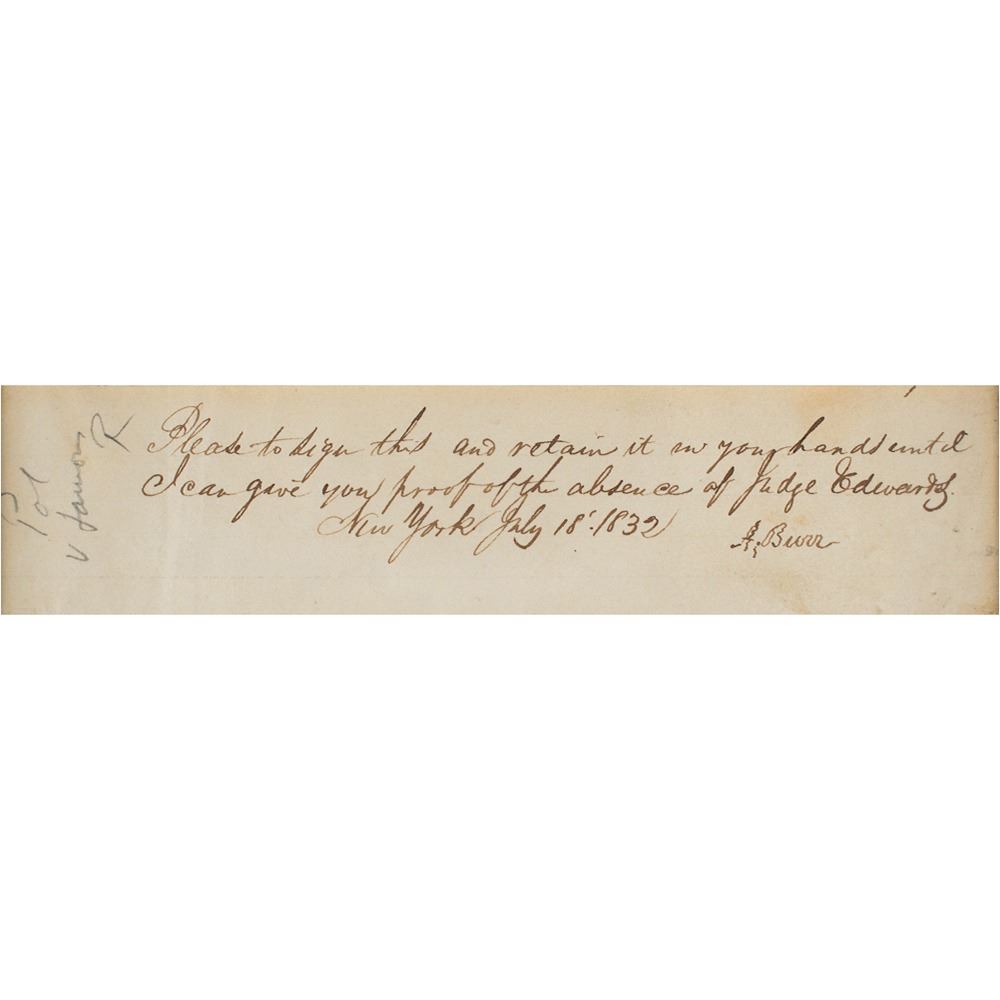 Please to sign this and retain it in your hands until
I can gave you proof of th absence of Judge Edwards.
New York July 18. 1832
A. Burr
Pol
v famous
R